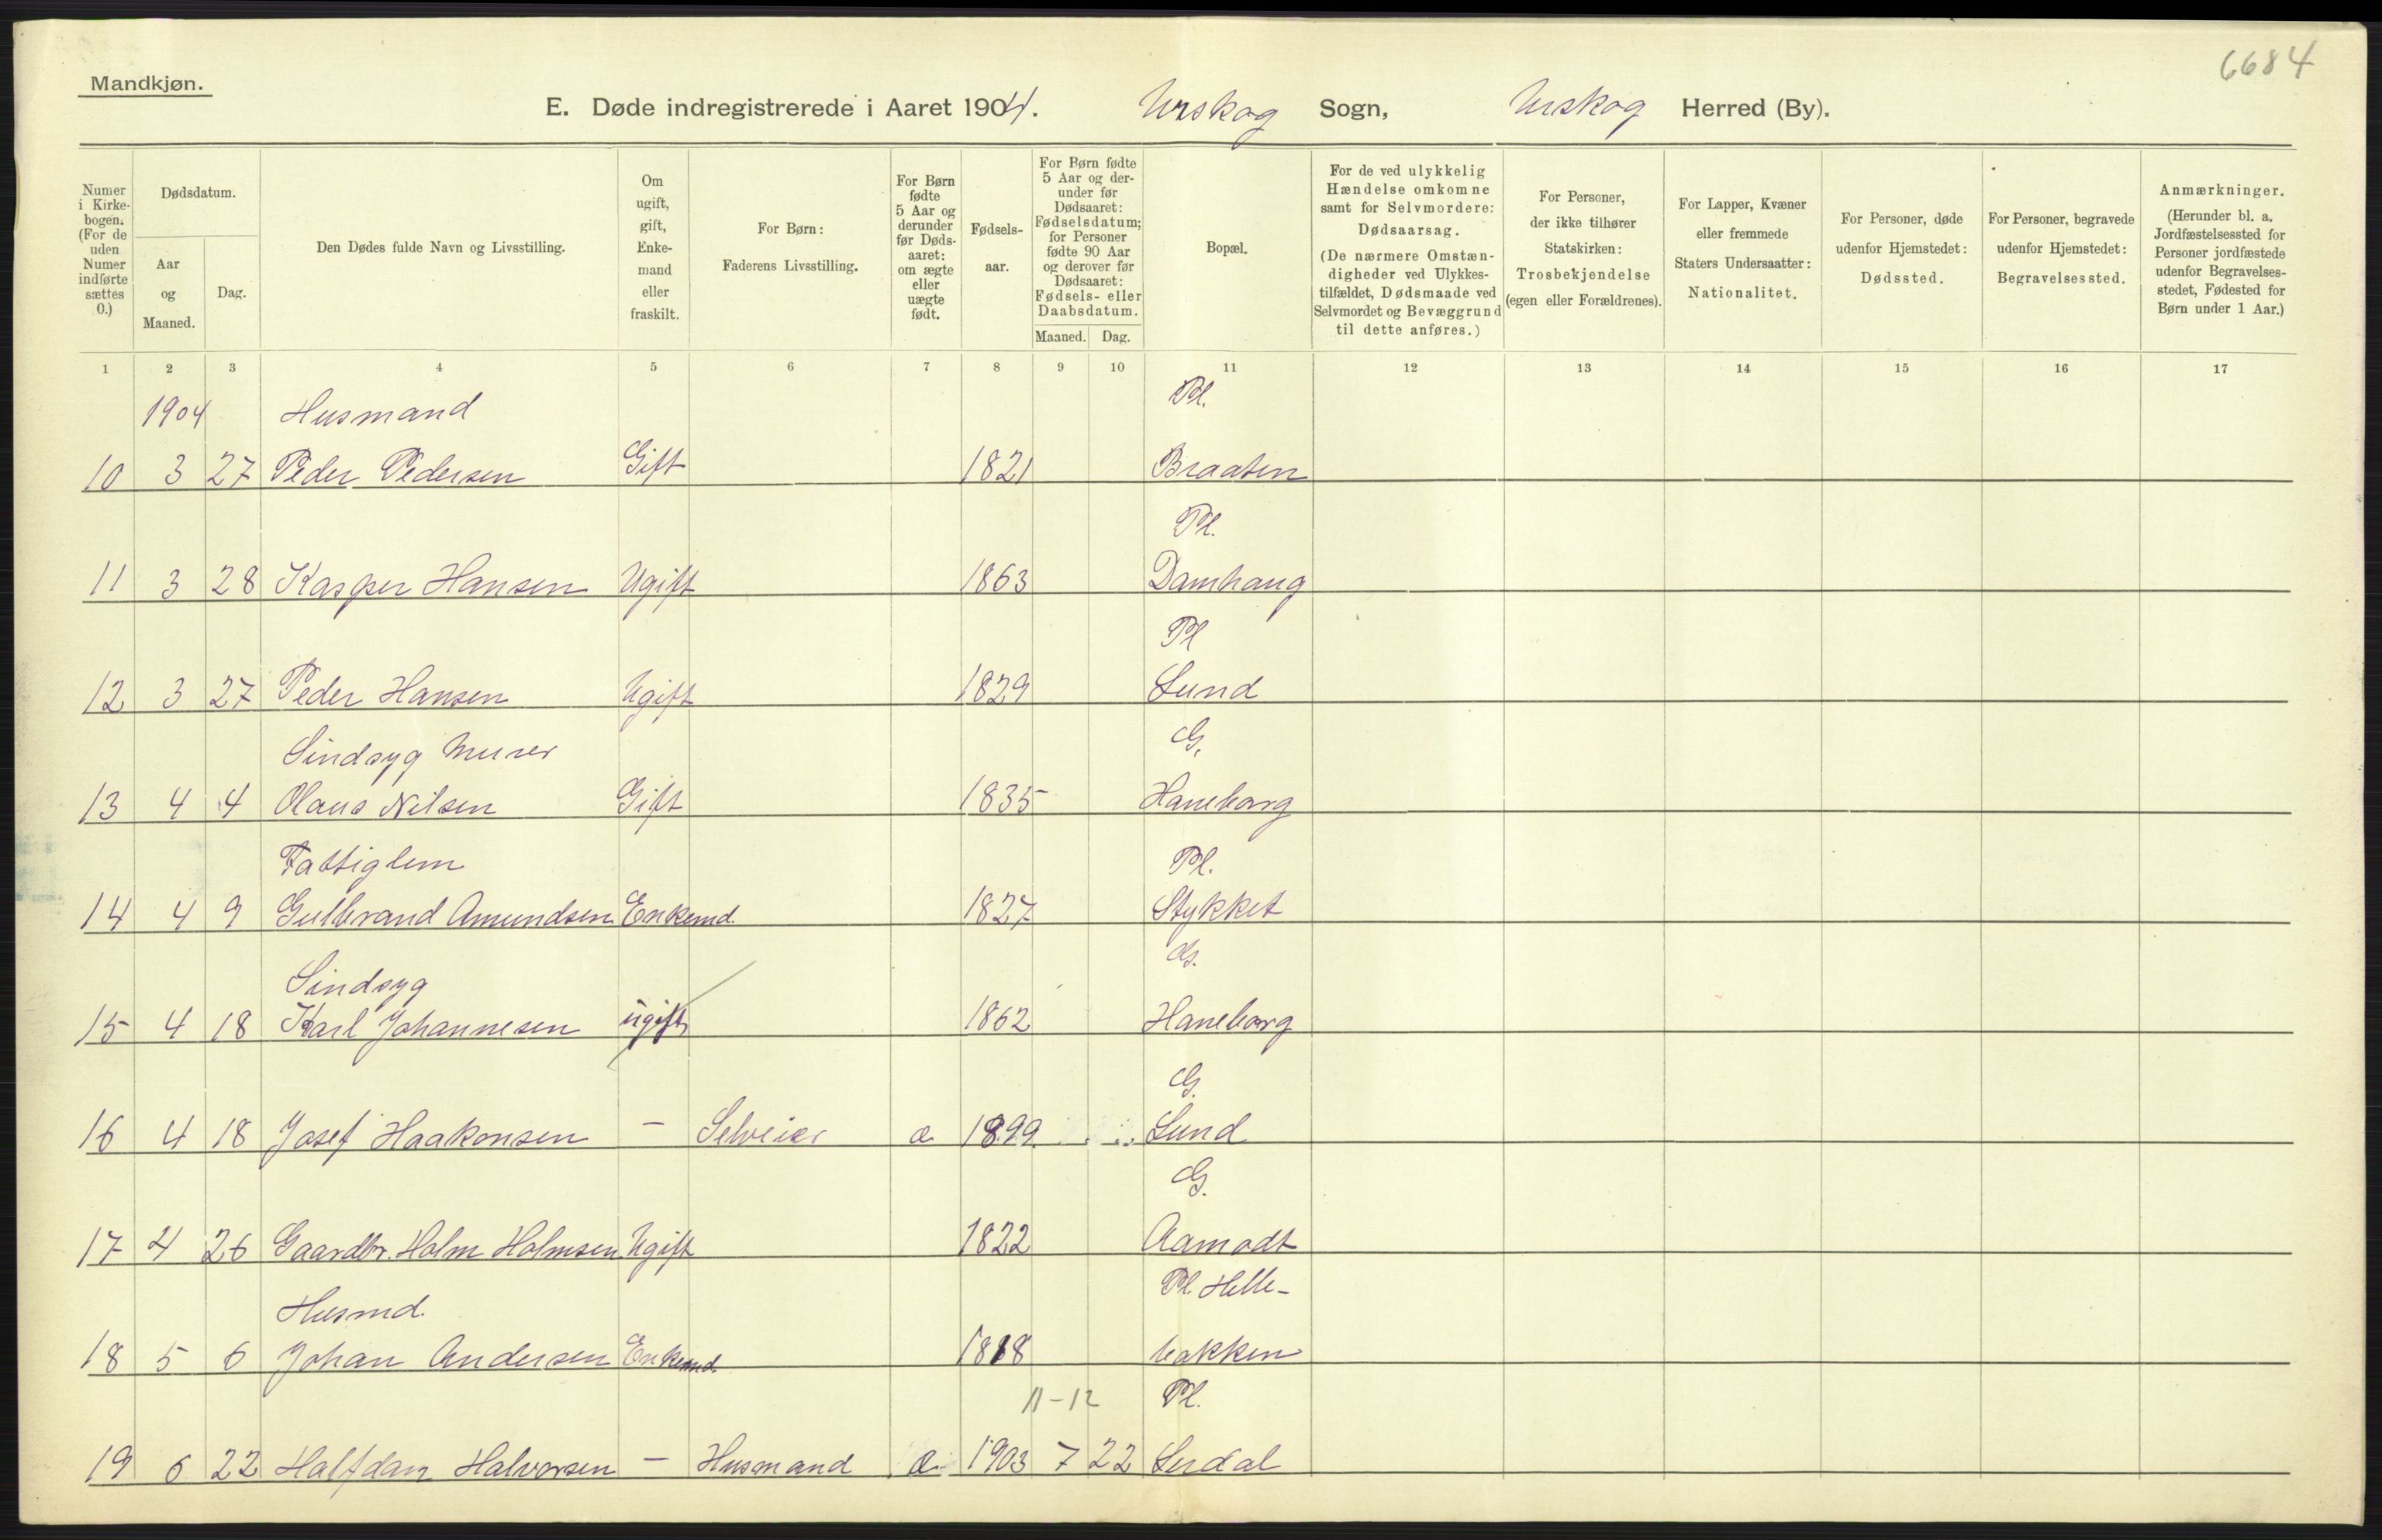 6684
Mandkjøn.
E. Døde indregistrerede i Aaret 1904. Urskog Sogn, Urskog Herred (By).
Numer i Kirkebogen. (For de uden Numer indførte sættes 0.)
Dødsdatum.
Aar og Maaned.
Dag.
Den Dødes fulde Navn og Livsstilling.
Om ugift, gift, Enkemand eller fraskilt.
For Børn: Faderens Livsstilling.
For Børn fødte 5 Aar og derunder før Dødsaaret: om ægte eller uægte født.
Fødselsaar.
For Børn fødte 5 Aar og derunder før Dødsaaret: Fødselsdatum; for Personer fødte 90 Aar og derover før Dødsaaret: Fødsels- eller Daabsdatum.
Maaned. Dag.
Bopæl.
For de ved ulykkelig Hændelse omkomne samt for Selvmordere: Dødsaarsag. (De nærmere Omstændigheder ved Ulykkestilfældet, Dødsmaade ved Selvmordet og Bevæggrund til dette anføres.)
For Personer, der ikke tilhører Statskirken: Trosbekjendelse (egen eller Forældrenes).
For Lapper, Kvæner eller fremmede Staters Undersaatter: Nationalitet.
For Personer, døde udenfor Hjemstedet: Dødssted.
For Personer, begravede udenfor Hjemstedet: Begravelsessted.
Anmærkninger. (Herunder bl. a. Jordfæstelsessted for Personer jordfæstede udenfor Begravelsesstedet, Fødested for Børn under 1 Aar.)
1 2 3 4 5 6 7 8 9 10 11 12 13 14 15 16 17
1904 Husmand Pl.
10 3 27 Peder Pedersen Gift 1821 Braaten
Pl.
11 3 28 Kasper Hansen Ugift 1863 Damhaug
Pl
12 3 27 Peder Hansen Ugift 1829 Lund
Sindsyg Murer G.
13 4 4 Olaus Nilsen Gift 1835 Haneborg
Fattiglem Pl.
14 4 9 Gulbrand Amundsen Enkemd. 1827 Stykket
Sindsyg G.
15 4 18 Karl Johannesen ugift 1862 Haneborg
G.
16 4 18 Josef Haakonsen — Selveier æ 1899 Lund
G.
17 4 26 Gaardbr. Holm Holmsen Ugift 1822 Aamodt
Husmd. Pl Helle-
18 5 6 Johan Andersen Enkemd. 1818 bakken
11-12 Pl.
19 6 22 Halfdan Halvorsen — Husmand æ 1903 7 22 Lerdal